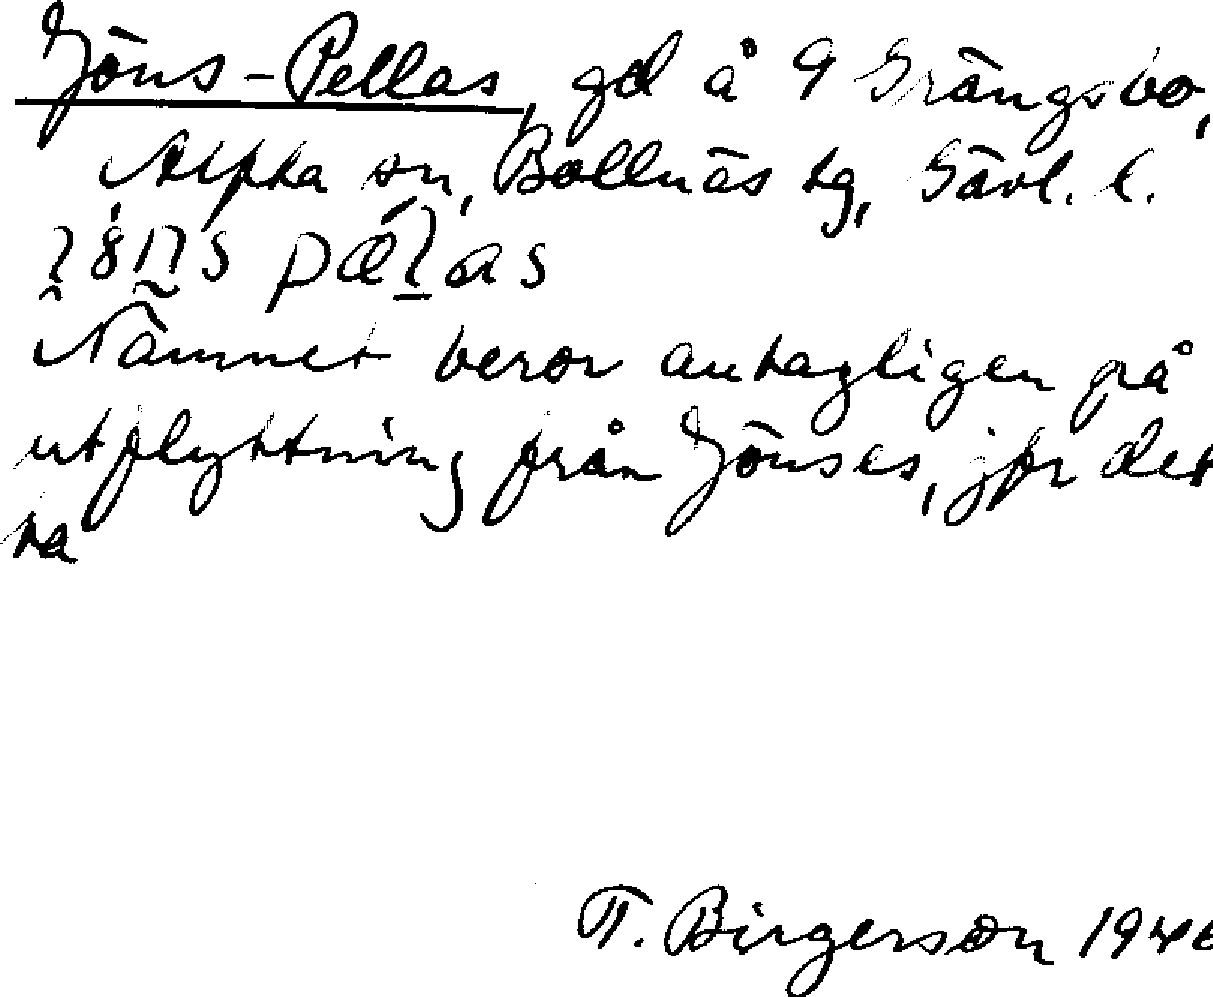 Jöns-Pellas, gd å 9 Grängsbo,
Alfta sn, Bollnäs tg, Gävl. l.
Namnet beror antagligen på
utflyttning från Jönses, jfr det
ta
T. Birgerson 1946